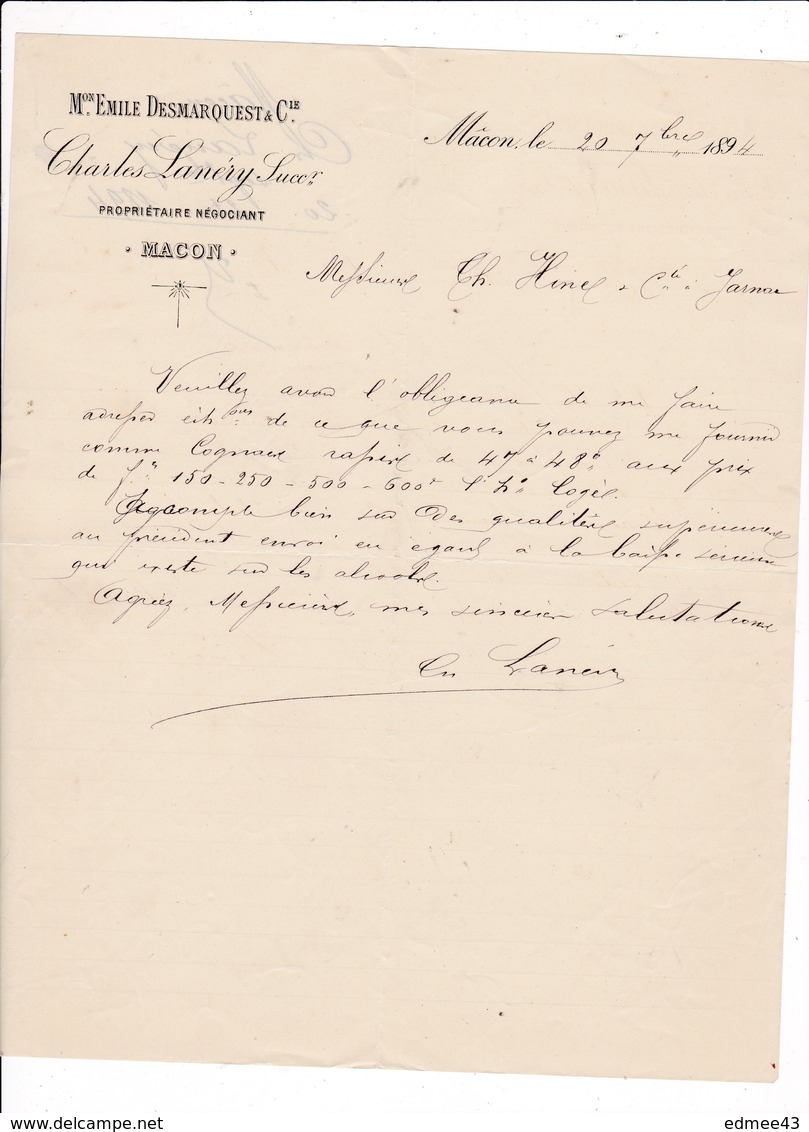 Mon. EMILE DESMARQUEST & CIE.
Charles Lanéry Succr.
PROPRIÉTAIRE NÉGOCIANT
· MACON ·
Mâcon, le 20 7bre 1894
Messieurs Th. Hine & Cie à Jarnac
Veuillez avoir l'obligeance de me faire
adresser éch ons de ce que vous pouvez me fournir
comme Cognacs rassis de 47 à 48° aux prix
de f. 150 - 250 - 500 - 600 l'ho logé.
Je compte bien sur des qualités supérieures
au précédent envoi en égard à la baisse
qui existe sur les alcools.
Agréez, Messieurs, mes sincères salutations
Ch Lanéry
delcampe.net
edmee43